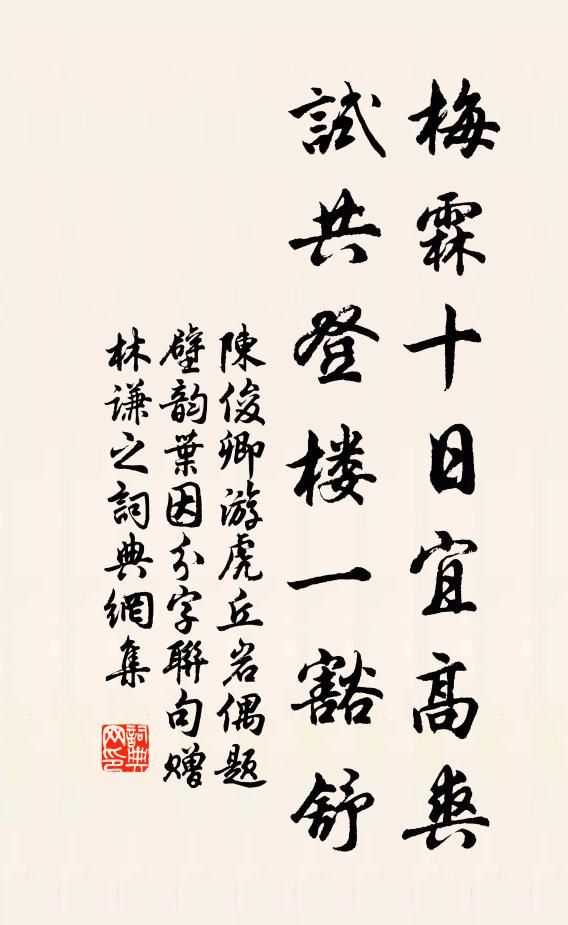 梅霖十日宜高爽
試共登楼一豁舒
陳俊卿游虎丘岩偶题
壁韵葉因分字聯句赠
林谦之詞典網集
詞典网印